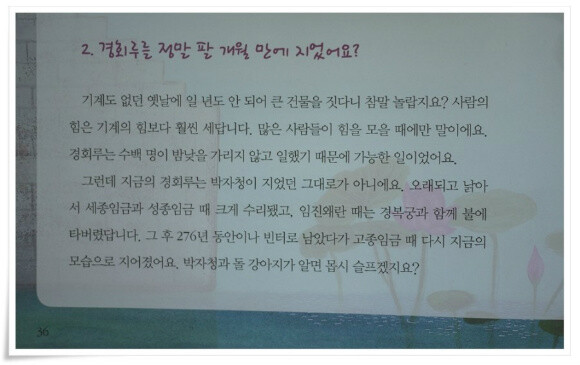 2. 경회루를 정말 팔 개월 만에 지었어요?
기계도 없던 옛날에 일 년도 안 되어 큰 건물을 짓다니 참말 놀랍지요? 사람의
힘은 기계의 힘보다 훨씬 세답니다. 많은 사람들이 힘을 모을 때에만 말이에요.
경회루는 수백 명이 밤낮을 가리지 않고 일했기 때문에 가능한 일이었어요.
그런데 지금의 경회루는 박자청이 지었던 그대로가 아니에요. 오래되고 낡아
서 세종임금과 성종임금 때 크게 수리됐고, 임진왜란 때는 경복궁과 함께 불에
타버렸답니다. 그 후 276년 동안이나 빈터로 남았다가 고종임금 때 다시 지금의
모습으로 지어졌어요. 박자청과 돌 강아지가 알면 몹시 슬프겠지요?
36